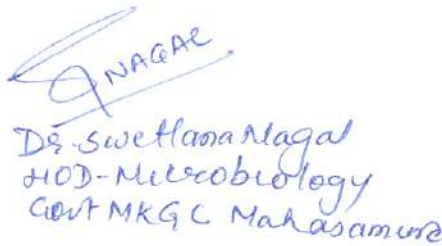 SNAGAL
Dr. Swetlana Nagal
HOD-Microbiology
Govt MKGC Mahasamund